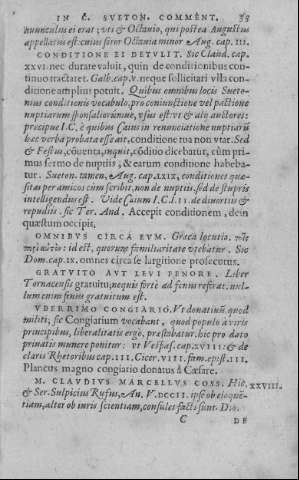 IN C. SVETON. COMMENT. 35
nuunculus ei erat; vti & Octauio, qui postea Augustus
appellatus est: cuius soror Octauia minor Aug. cap. III.
CONDITIONE EI DETVLIT. Sic Claud. cap.
XXVI. nec durare valuit, quin de conditionibus con-
tinuo tractaret. Galb. cap. V. neque sollicitari vlla con-
ditione amplius potuit. Quibus omnibus locis Sueto-
nius conditionis vocabulo, pro coniunctione vel pactione
nuptiarum sponsaliorumue, vsus est: vt & alij auctores:
præcipue I.C. è quibus Caius in renunciatione nuptiarū
hæc verba probata esse ait, conditione tua non vtar. Sed
& Festus, cōuenta, inquit, cōditio dicebatur, cùm pri-
mus sermo de nuptiis, & earum conditione habeba-
tur. Sueton. tamen, Aug. cap. LXIX, conditiones quæ-
sitas per amicos cùm scribit, non de nuptiis. sed de stupris
intelligendum est. Vide Caium I.C. l. II. de diuortiis &
repudiis. sic Ter. And. Accepit conditionem, dein
quæstum occipit.
OMNIBVS CIRCA EVM. Græca locutio.
id est, quorum familiaritate vtebatur. Sic
Dom. cap. IX. omnes circa se largitione prosecutus.
GRATVITO AVT LEVI FENORE. Liber
Tornacensis gratuitu, nequis forte ad fenus referat. nul-
lum enim fenus gratuitum est.
VBERRIMO CONGIARIO. Vt donatiuū, quod
militi; sic Congiarium vocabant, quod populo à viris
principibus, liberalitatis ergô, præstabatur. hic pro dato
priuatis munere ponitur: vt Vespas. cap. XVIII: & de
claris Rhetoribus cap. III. Cicer. VIII. fam. epist. III.
Plancus magno congiario donatus à Cæsare.
M. CLAVDIVS MARCELLVS COSS. Hic, XXVIII.
& Ser. Sulpicius Rufus, An. V. DCCII. ipse ob eloquē-
tiam, alter ob iuris scientiam, consules facti sunt. Dio.
C DE